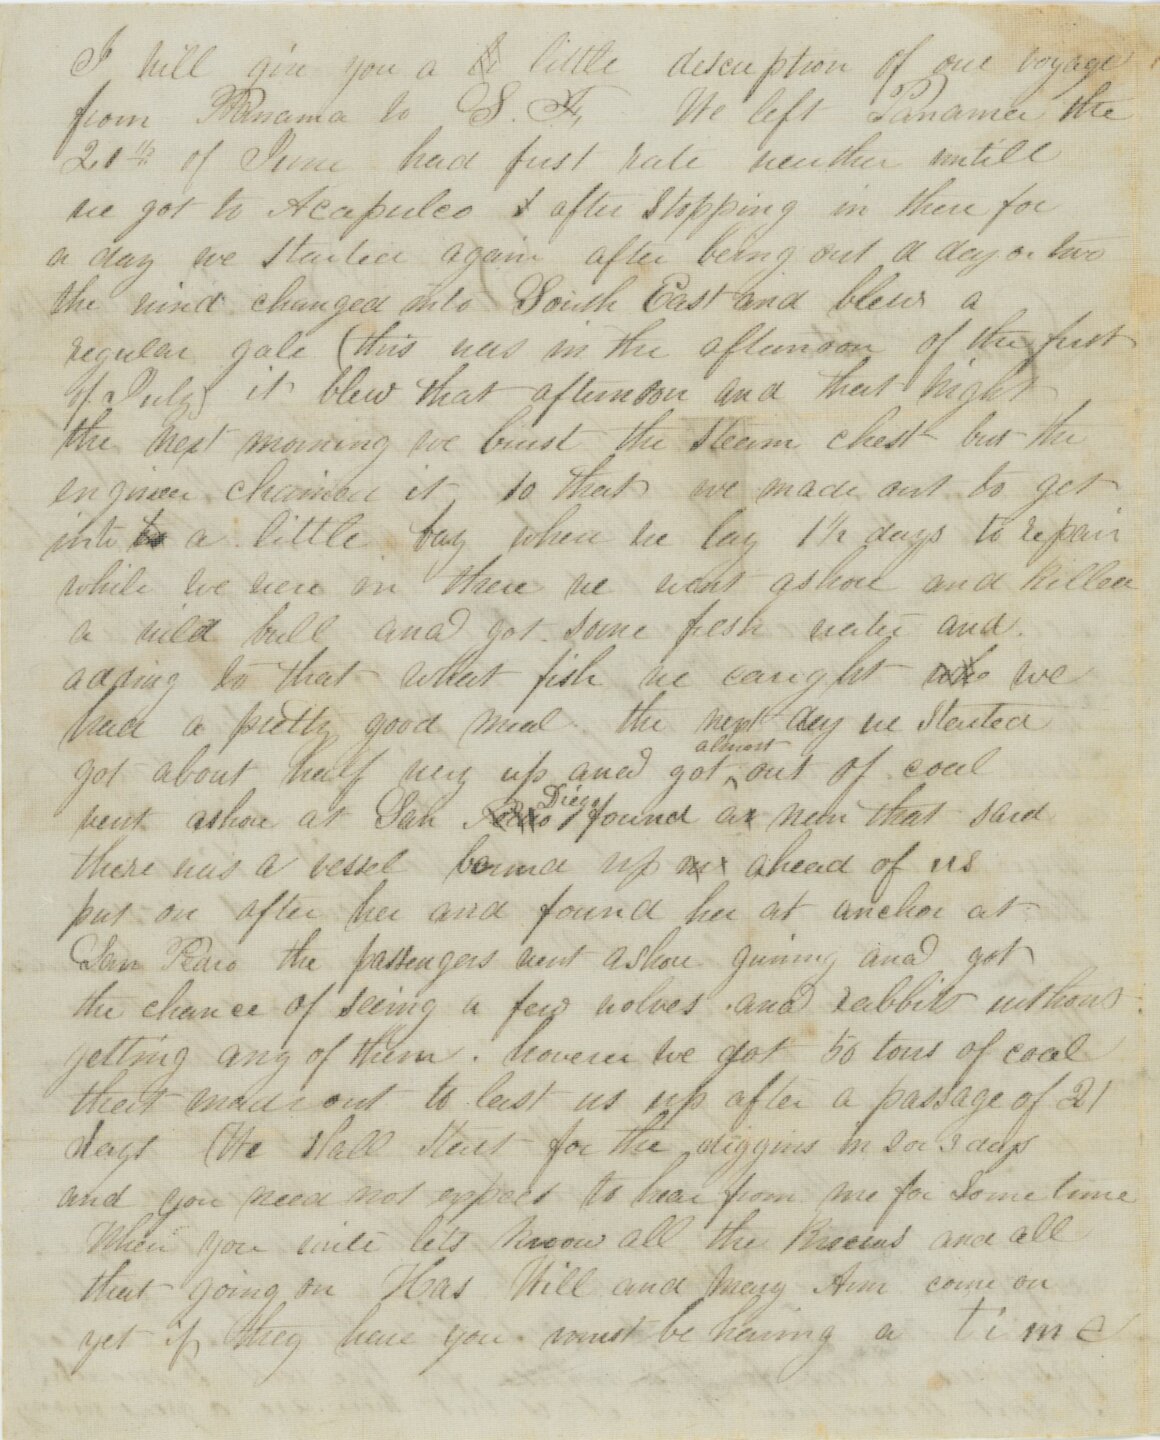 I will give you a little description of our voyage
from Panama to S. F. We left Panama the
21st of June had first rate weather untill
we got to Acapulco & after stopping in there for
a day we started again after being out a day or two
the wind changed into South East and blew a
regular gale (this was in the afternoon of the first
of July) it blew that afternoon and that night
the next morning we burst the steam chest but the
engineer chained it so that we made out to get
into a little bay where we lay 1 1/2 days to repair
while we were in there we went ashore and killed
a wild bull and got some fresh water and
adding to that what fish we caught we
had a pretty good meal the next day we started
got about half way up and got almost out of coal
went ashore at San Diego & found a man that said
there was a vessel bound up ahead of us
put on after her and found her at anchor at
San Pedro the passengers went ashore guning and got
the chance of seeing a few wolves and rabbits without
getting any of them. however we got 50 tons of coal
that made out to last us up after a passage of 21
days (We shall start for the diggins in 2 or 3 days
and you need not expect to hear from me for some time
When you write lets know all the knews and all
that going on Has Will and Mary Ann come on
yet if they have you must be having a time